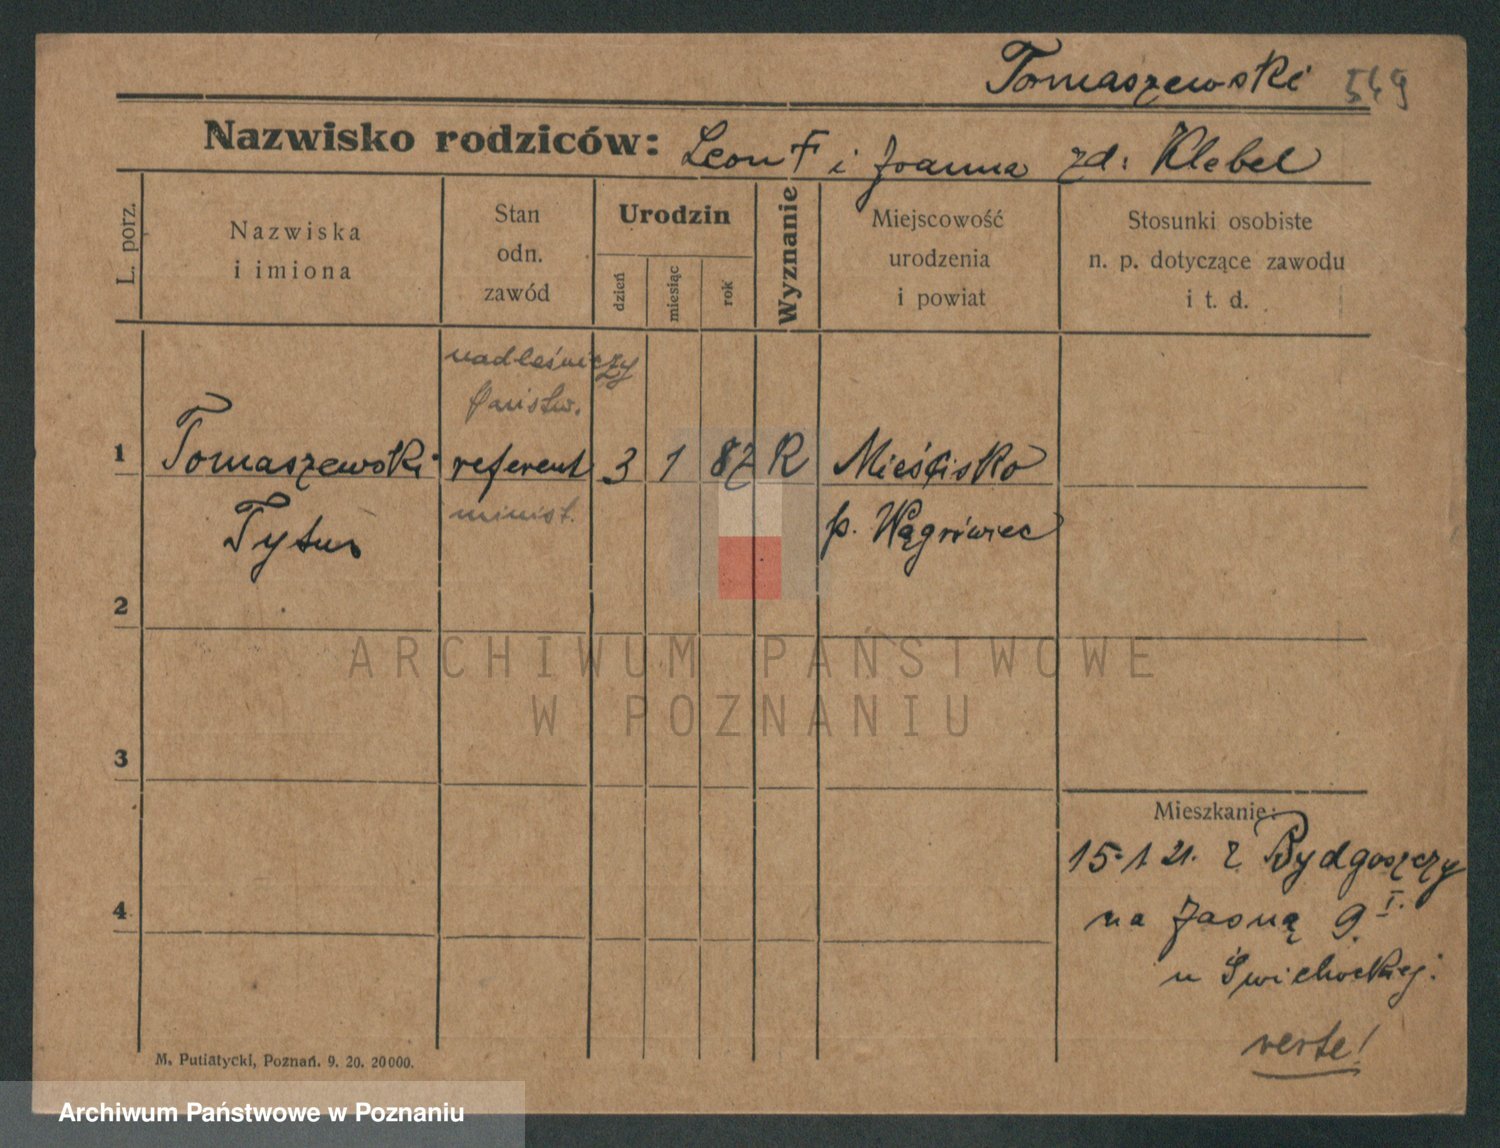 Tomaszewski 549
Nazwisko rodziców: Leon F i Joanna zd: Klebel
L. porz.
Nazwiska
i imiona
Stan
odn.
zawód
Urodzin
dzień
miesiąc
rok
Wyznanie
Miejscowość
urodzenia
i powiat
Stosunki osobiste
n. p. dotyczące zawodu
i t. d.
nadleśniczy
państw.
1 Tomaszewski referent 3 1 82 R Mieścisko
Tytus minist. p. Wągrówiec
2
ARCHIWUM PAŃSTWOWE
W POZNANIU
3
Mieszkanie:
15.1 21. z Bydgoszczy
4
na Jasną 9 I.
u Świchockiej.
verte!
M. Putiatycki, Poznań. 9. 20. 20000.
Archiwum Państwowe w Poznaniu